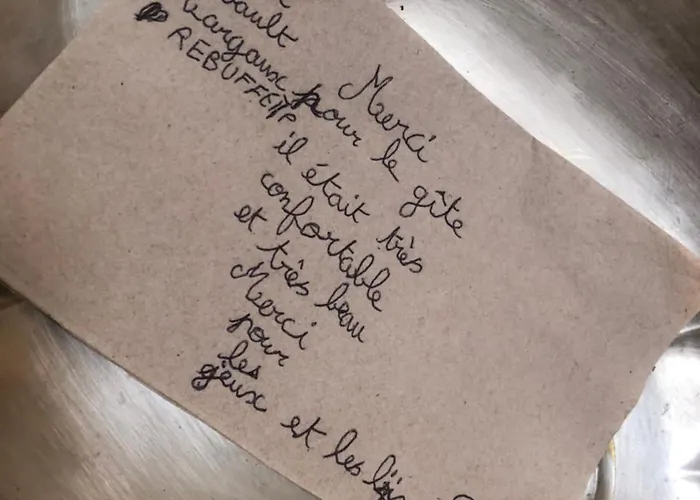 Margaux
REBUFFET
Merci
pour le gîte
il était très
confortable
et très beau
Merci
pour
les
jeux et les